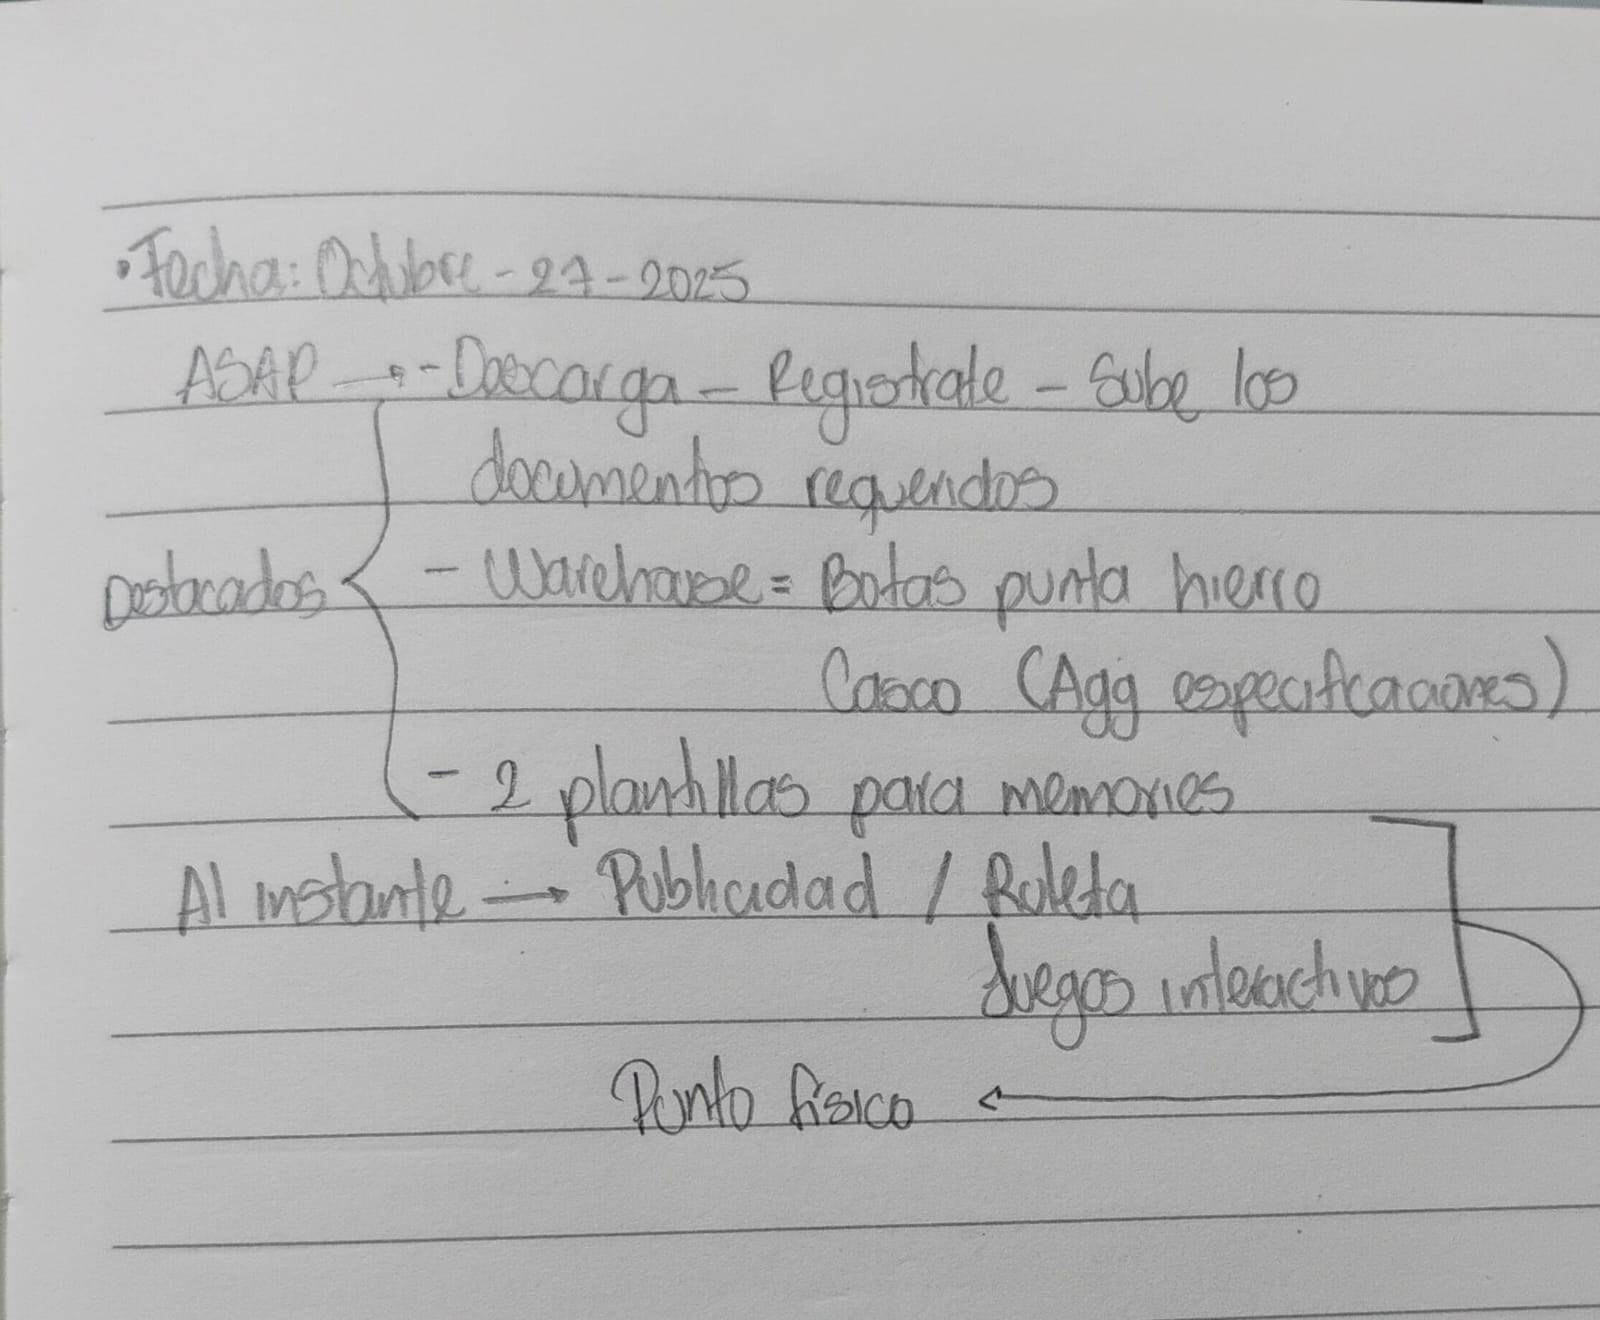 • Fecha: Octubre - 27 - 2025
ASAP → - Descarga - Registrate - Sube los
documentos requeridos
Destacados - Warehouse = Botas punta hierro
Casco (Agg especificaciones)
- 2 plantillas para memories
Al instante → Publicidad / Ruleta
Juegos interactivos
Punto físico ←